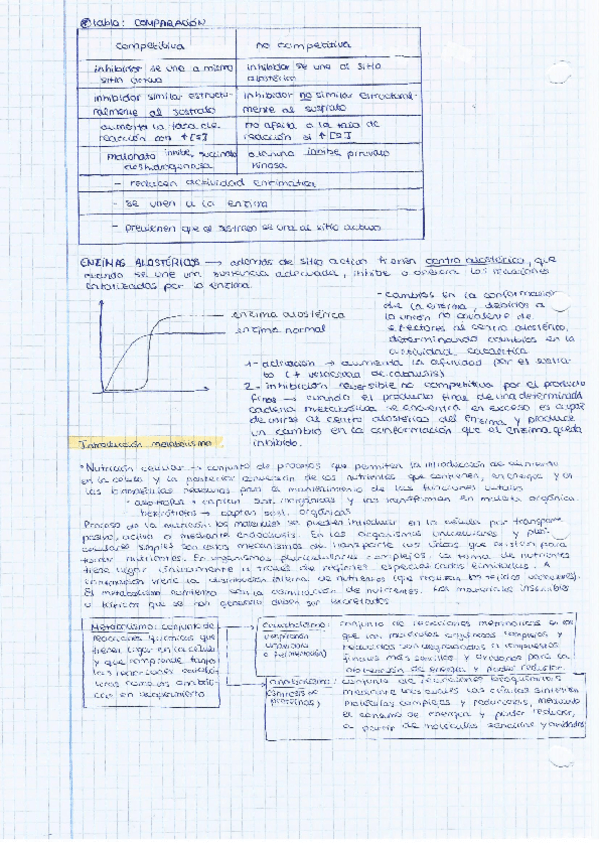 Tabla: COMPARACIÓN
competitiva
no competitiva
inhibidor se une a mismo
sitio activo
inhibidor se une al sitio
alostérico
inhibidor similar estructu-
ralmente al sustrato
inhibidor no similar estructural-
mente al sustrato
aumenta la tasa de
reacción con ↑[S]
no afecta a la tasa de
reacción si ↑[S]
malonato inhibe succinato
deshidrogenasa
alanina inhibe piruvato
kinasa
- reducen actividad enzimática
- se unen a la enzima
- previenen que el sustrato se una al sitio activo
ENZIMAS ALOSTÉRICOS → además de sitio activo tienen centro alostérico, que
cuando se une una sustancia adecuada, inhibe o activa las reacciones
catalizadas por la enzima
enzima alostérica
enzima normal
- cambios en la conformación
de la enzima, debidos a
la unión no covalente de
efectores al centro alostérico,
determinando cambios en la
actividad catalítica
1- activación → aumenta la afinidad por el sustra-
to (+ velocidad de catálisis)
2- inhibición reversible no competitiva por el producto
final → cuando el producto final de una determinada
cadena metabólica se encuentra en exceso es capaz
de unirse al centro alostérico del enzima y produce
un cambio en la conformación que el enzima queda
inhibido.
Introducción metabolismo
Nutrición celular → conjunto de procesos que permiten la introducción de alimento
en la célula y la posterior conversión de los nutrientes que contienen, en energía y en
las biomoléculas necesarias para el mantenimiento de las funciones vitales
autótrofos → captan sust. inorgánicas y las transforman en materia orgánica
heterótrofos → captan sust. orgánicas
Proceso de la nutrición los materiales se pueden introducir en la célula por transporte
pasivo, activo o mediante endocitosis. En los organismos unicelulares y pluri-
celulares simples son estos mecanismos de transporte los únicos que existen para
tomar nutrientes. En organismos pluricelulares complejos, la toma de nutrientes
tiene lugar únicamente a través de regiones especializadas limitadas. A
continuación viene la distribución interna de nutrientes
El metabolismo comienza con la asimilación de nutrientes. Los materiales inservibles
o tóxicos que se han generado deben ser excretados
Metabolismo: conjunto de
reacciones químicas que
tienen lugar en la célula
y que comprende tanto
las reacciones catabó-
licas como las anabóli-
cas en acoplamiento
Catabolismo:
(respiración
o fermentación)
conjunto de reacciones metabólicas en las
que las moléculas orgánicas complejas y
reducidas son degradadas a compuestos
finales más sencillos y oxidados para la
obtención de energía y poder reductor.
Anabolismo:
(síntesis de
proteínas)
conjunto de reacciones bioquímicas
mediante las cuales las células sintetizan
moléculas complejas y reducidas, mediante
el consumo de energía y poder reductor,
a partir de moléculas sencillas y oxidadas